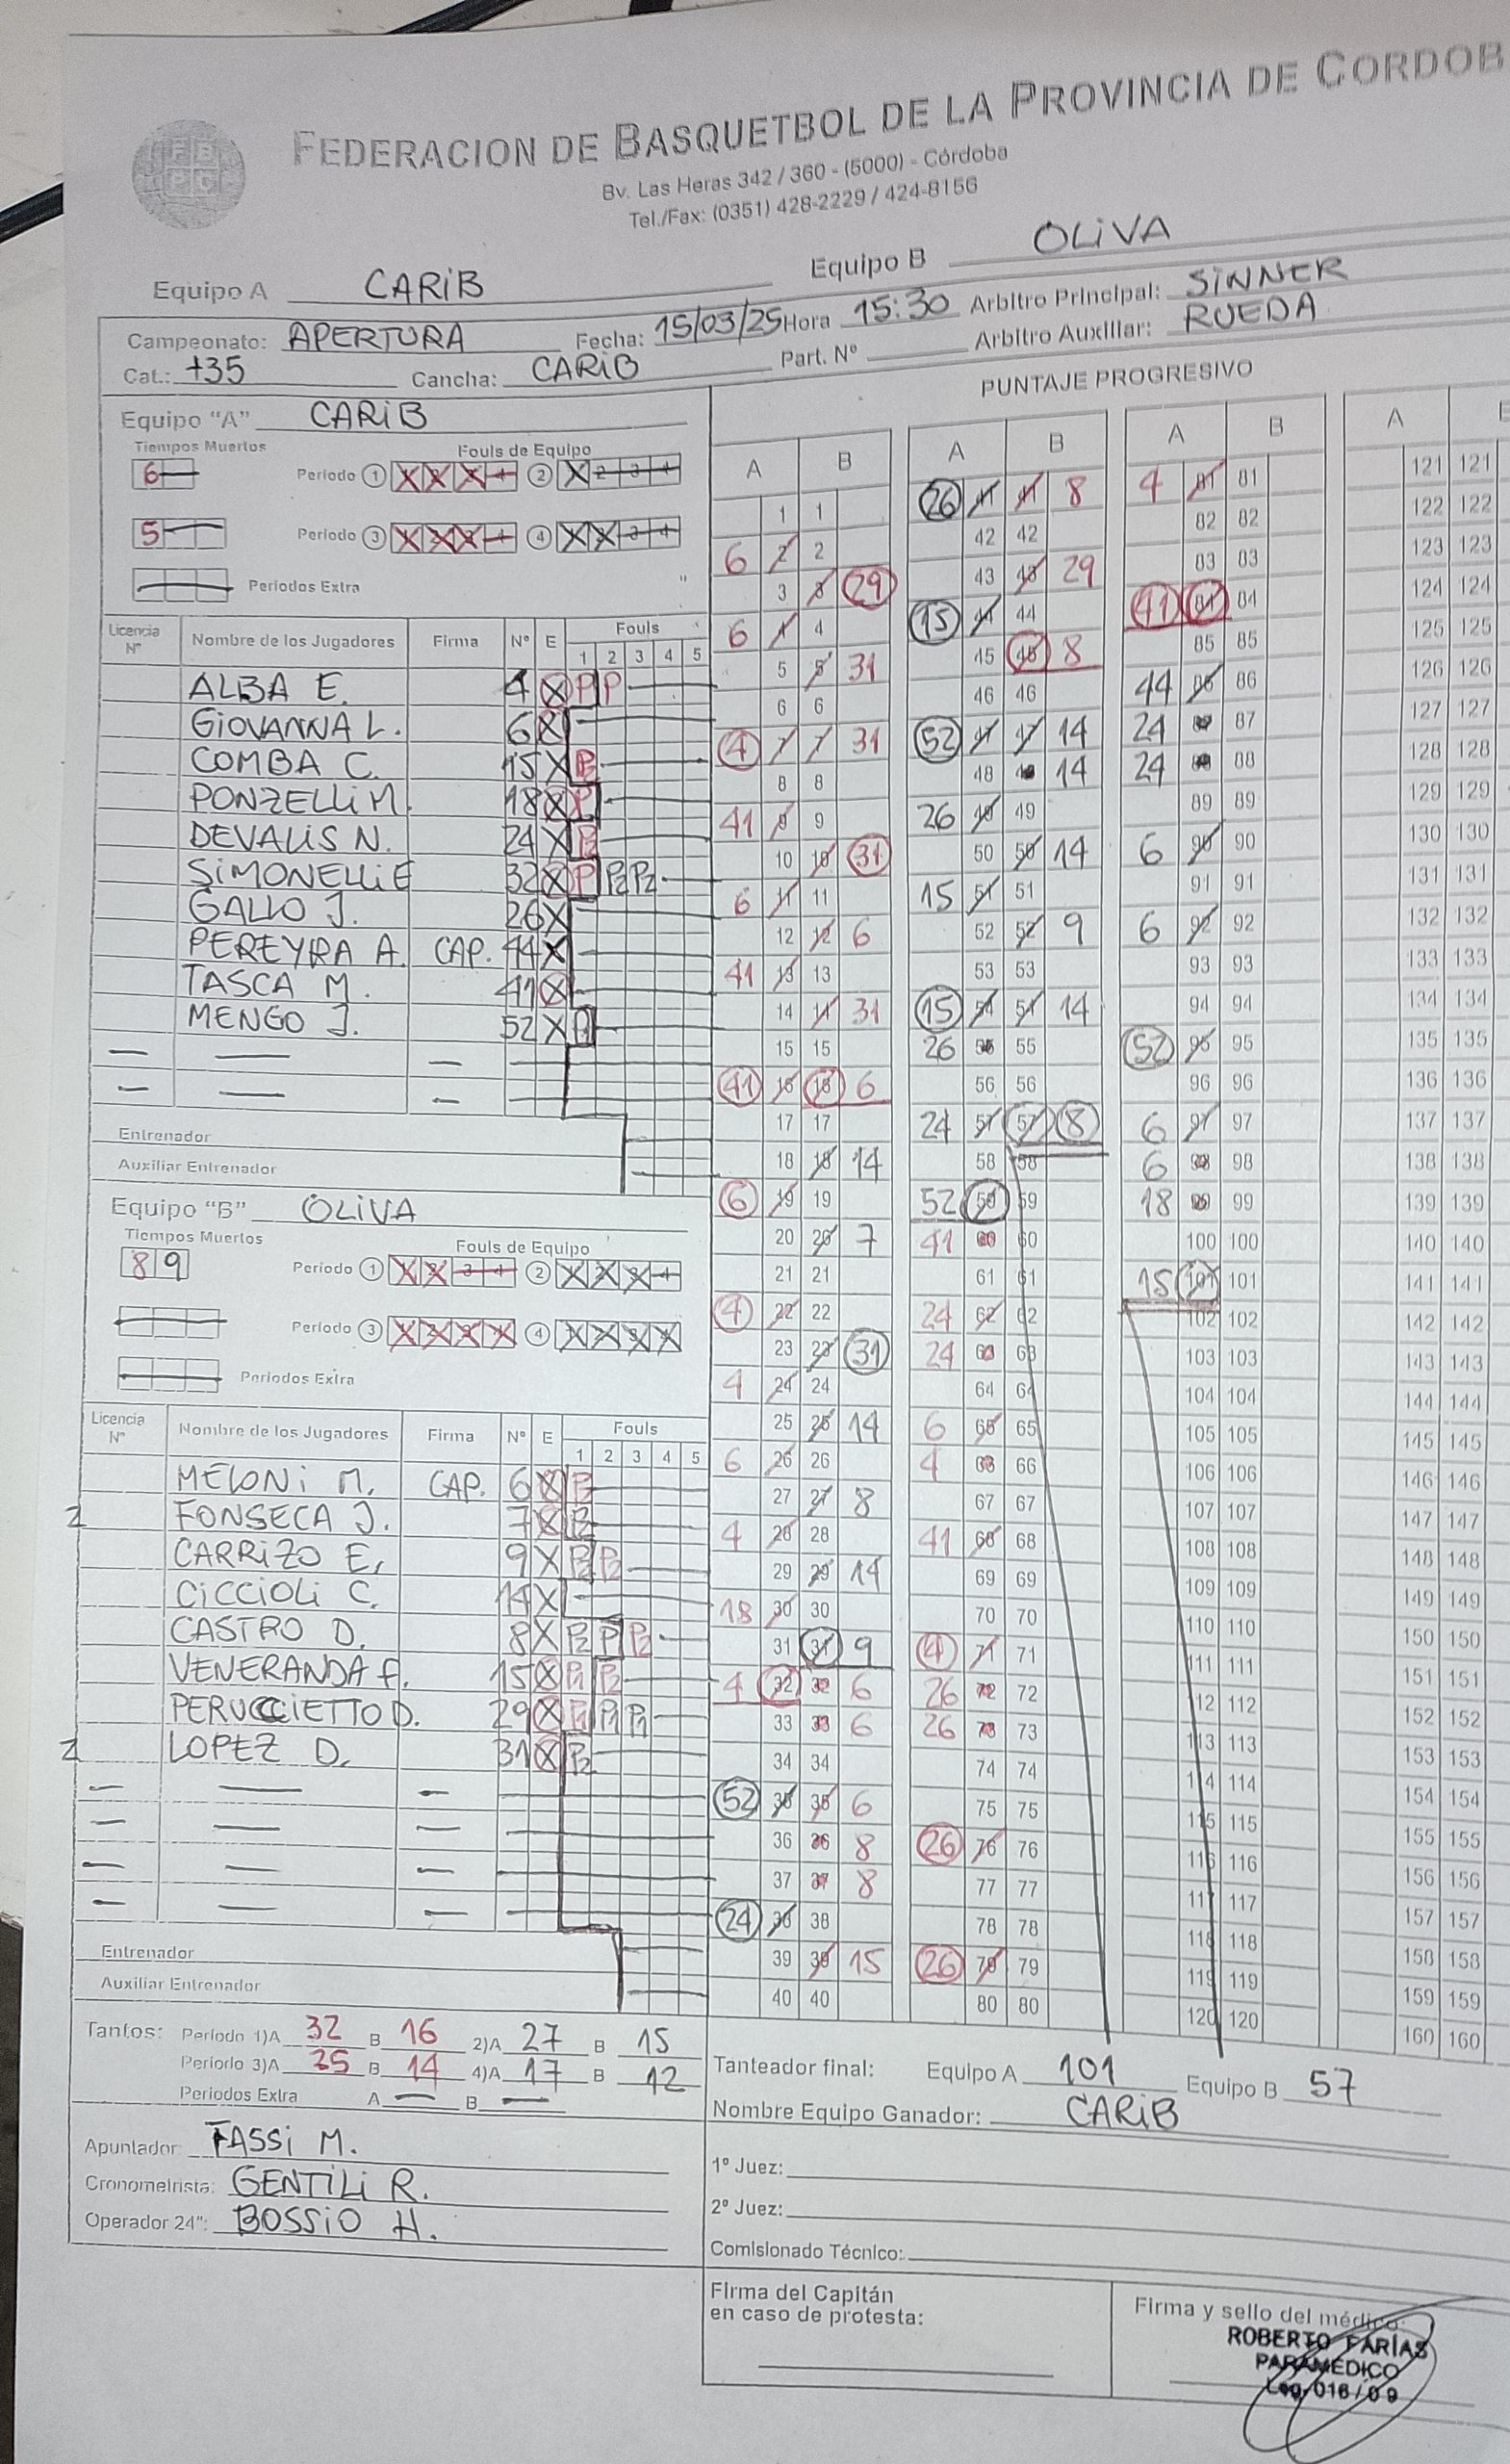 FEDERACION DE BASQUETBOL DE LA PROVINCIA DE CORDOB
Bv. Las Heras 342 / 360 - (5000) - Córdoba
Tel./Fax: (0351) 428-2229 / 424-8156
Equipo A CARIB Equipo B OLIVA
Campeonato: APERTURA Fecha: 15/03/25 Hora 15:30 Arbitro Principal: SINNER
Cat.: +35 Cancha: CARIB Part. Nº Arbitro Auxiliar: RUEDA
PUNTAJE PROGRESIVO
Equipo "A" CARIB
Tiempos Muertos Fouls de Equipo
6 Periodo 1 2
5 Periodo 3 4
Periodos Extra
Licencia Nº Nombre de los Jugadores Firma Nº E Fouls
1 2 3 4 5
ALBA E. 4 X P P
GIOVANNA L. 6 X
COMBA C. 15 X P2
PONZELLI M. 18 X P
DEVALIS N. 24 X P2
SIMONELLI E 32 X P P2 P2
GALLO J. 26 X
PEREYRA A. CAP. 44 X
TASCA M. 41 X
MENGO J. 52 X
Entrenador
Auxiliar Entrenador
Equipo "B" OLIVA
Tiempos Muertos Fouls de Equipo
8 9 Periodo 1 2
Periodo 3 4
Periodos Extra
Licencia Nº Nombre de los Jugadores Firma Nº E Fouls
1 2 3 4 5
MELONI M. CAP. 6 X P2
FONSECA J. 7 X P2
CARRIZO E. 9 X P2 P2
CICCIOLI C. 14 X
CASTRO D. 8 X P2 P P2
VENERANDA F. 15 X P1 P2
PERUCCIETTO D. 29 X P1 P1 P1
LOPEZ D. 31 X P2
Entrenador
Auxiliar Entrenador
A B A B A B A
1 1 26 41 41 8 4 81 81 121 121
6 2 2 42 42 82 82 122 122
3 3 29 43 43 29 83 83 123 123
6 4 4 15 44 44 41 84 84 124 124
5 5 31 45 45 8 85 85 125 125
6 6 46 46 44 86 86 126 126
4 7 7 31 52 47 47 14 24 87 87 127 127
8 8 48 48 14 24 88 88 128 128
41 9 9 26 49 49 89 89 129 129
10 10 31 50 50 14 6 90 90 130 130
6 11 11 15 51 51 91 91 131 131
12 12 6 52 52 9 6 92 92 132 132
41 13 13 53 53 93 93 133 133
14 14 31 15 54 54 14 94 94 134 134
15 15 26 55 55 52 95 95 135 135
41 16 16 6 56 56 96 96 136 136
17 17 24 57 57 8 6 97 97 137 137
18 18 14 58 58 6 98 98 138 138
6 19 19 52 59 59 18 99 99 139 139
20 20 7 41 60 60 100 100 140 140
21 21 61 61 15 101 101 141 141
4 22 22 24 62 62 102 102 142 142
23 23 31 24 63 63 103 103 143 143
4 24 24 64 64 104 104 144 144
25 25 14 6 65 65 105 105 145 145
6 26 26 4 66 66 106 106 146 146
27 27 8 67 67 107 107 147 147
4 28 28 41 68 68 108 108 148 148
29 29 14 69 69 109 109 149 149
18 30 30 70 70 110 110 150 150
31 31 9 4 71 71 111 111 151 151
4 32 32 6 26 72 72 112 112 152 152
33 33 6 26 73 73 113 113 153 153
34 34 74 74 114 114 154 154
52 35 35 6 75 75 115 115 155 155
36 36 8 26 76 76 116 116 156 156
37 37 8 77 77 117 117 157 157
24 38 38 78 78 118 118 158 158
39 39 15 26 79 79 119 119 159 159
40 40 80 80 120 120 160 160
Tantos: Periodo 1)A 32 B 16 2)A 27 B 15
Periodo 3)A 25 B 14 4)A 17 B 12
Periodos Extra A — B —
Tanteador final: Equipo A 101 Equipo B 57
Nombre Equipo Ganador: CARIB
Apuntador: FASSI M.
Cronometrista: GENTILI R.
Operador 24": BOSSIO H.
1º Juez:
2º Juez:
Comisionado Técnico:
Firma del Capitán
en caso de protesta:
Firma y sello del médico:
ROBERTO FARÍAS
PARAMEDICO
Leg. 016 / 09